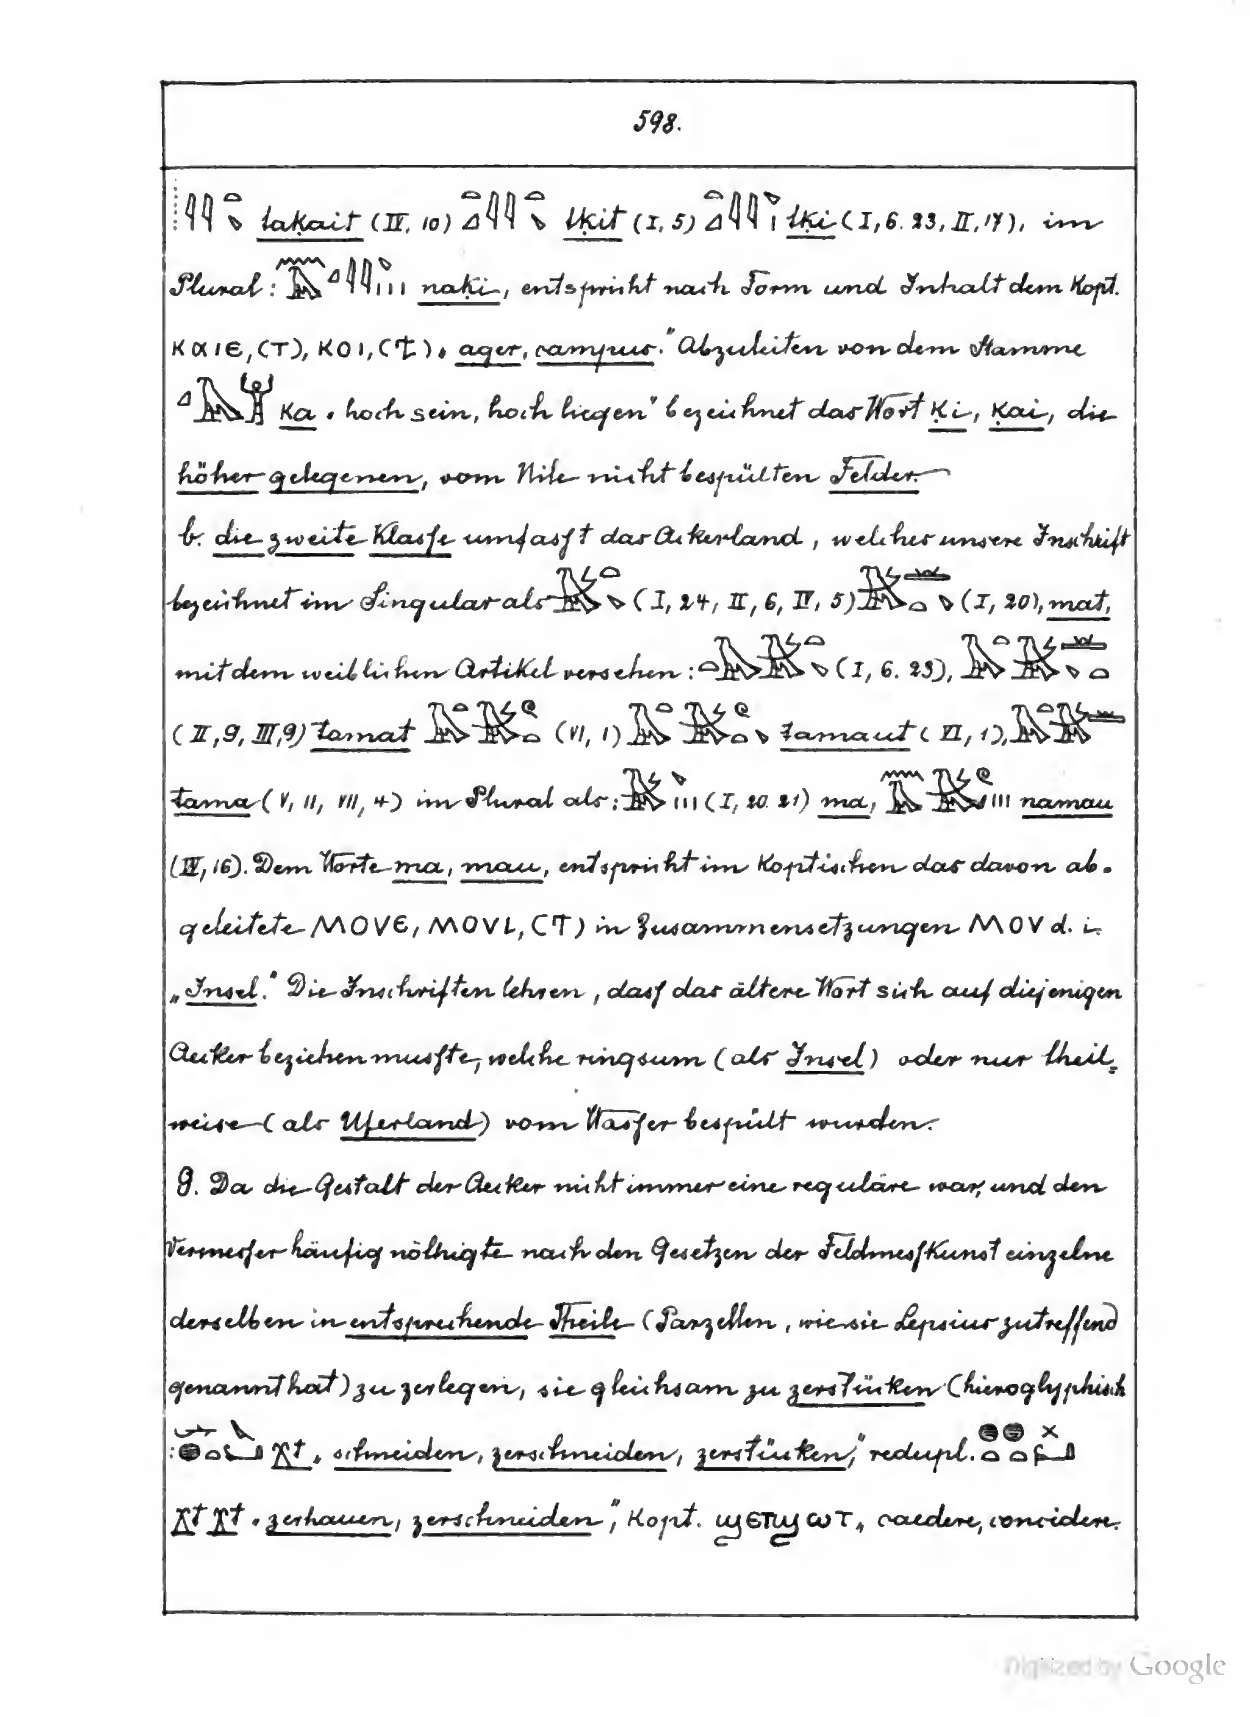 598.
taḳait (IV, 10) tḳit (I, 5) tḳi (I, 6. 23, II, 17), im
Plural: naḳi, entspricht nach Form und Inhalt dem Kopt.
ⲕⲁⲓⲉ, (ⲧ), ⲕⲟⲓ, (ϯ) „ager, campus." Abzuleiten von dem Stamme
ḳa „hoch sein, hoch liegen" bezeichnet das Wort ḳi, ḳai, die
höher gelegenen, vom Nile nicht bespülten Felder.
b. die zweite Klasse umfasst das Ackerland, welches unsere Inschrift
bezeichnet im Singular als (I, 24, II, 6, IV, 5) (I, 20), mat,
mit dem weiblichen Artikel versehen: (I, 6. 23),
(II, 9, III, 9) tamat (VI, 1) tamaut (VI, 1),
tama (V, 11, VII, 4) im Plural als: (I, 20. 21) ma, namau
(IV, 16). Dem Worte ma, mau, entspricht im Koptischen das davon ab-
geleitete ⲙⲟⲩⲉ, ⲙⲟⲩⲓ, (ⲧ) in Zusammensetzungen ⲙⲟⲩ d. i.
„Insel." Die Inschriften lehren, dass das ältere Wort sich auf diejenigen
Aecker beziehen musste, welche ringsum (als Insel) oder nur theil-
weise (als Uferland) vom Wasser bespült wurden.
9. Da die Gestalt der Aecker nicht immer eine reguläre war, und den
Vermesser häufig nöthigte nach den Gesetzen der Feldmesskunst einzelne
derselben in entsprechende Theile (Parzellen, wie sie Lepsius zutreffend
genannt hat) zu zerlegen, sie gleichsam zu zerstücken (hieroglyphisch
: χt „schneiden, zerschneiden, zerstücken," redupl.
χt χt „zerhauen, zerschneiden", Kopt. ϣⲉⲧϣⲱⲧ „caedere, concidere.
Digitized by Google